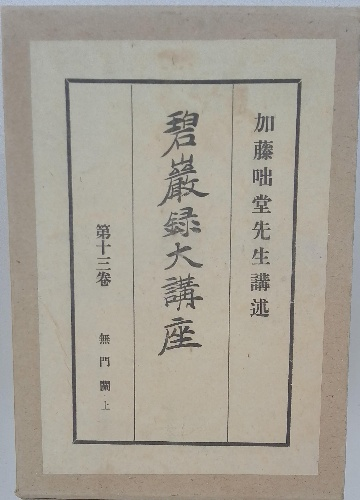 加藤咄堂先生講述
碧巖録大講座
第十三卷 無門關・上